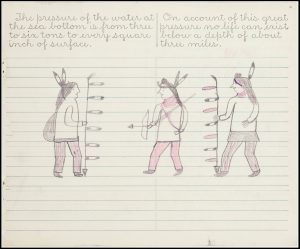 The pressure of the water at
the sea bottom is from three
to six tons to every square
inch of surface.
On account of this great
pressure no life can exist
below a depth of about
three miles.